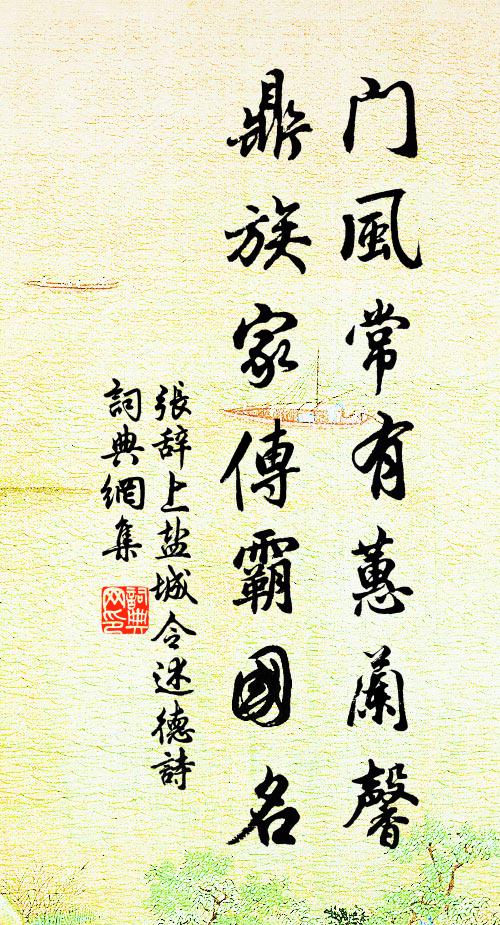 门風常有蕙蘭馨
鼎族家傳霸國名
張辞上盐城令述德詩
詞典網集
詞典网印